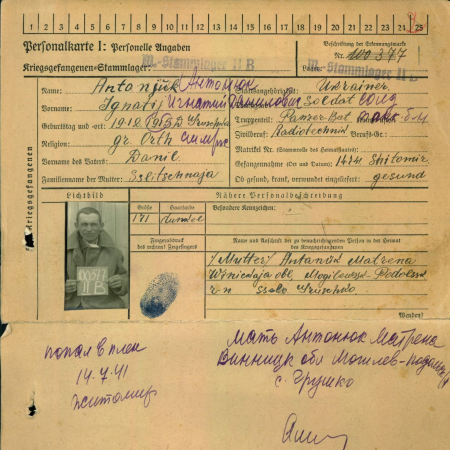 1 2 3 4 5 6 7 8 9 10 11 12 13 14 15 16 17 18 19 20 21 22 23 24 25
Personalkarte I: Personelle Angaben
Beschriftung der Erkennungsmarke
Kriegsgefangenen-Stammlager: M.-Stammlager II B
Nr. 100377
M.-Stammlager II B
Lager:
Name: Antonjuk Антонюк
Staatsangehörigkeit: Ukrainer
Vorname: Ignatij Игнатий Данилович
Soldat солд
Geburtstag und -ort:
Truppenteil: Panzer Bat.
Religion: gr. Orth
Zivilberuf: Radiotechnik Berufs-Gr.:
Vorname des Vaters: Danil
Matrikel Nr. (Stammrolle des Heimatstaates)
Gefangennahme (Ort und Datum): Shitomir
Familienname der Mutter:
Ob gesund, krank, verwundet eingeliefert: gesund
Kriegsgefangenen
Lichtbild
Nähere Personalbeschreibung
Größe Haarfarbe
Besondere Kennzeichen:
171 dunkel
Fingerabdruck
des rechten! Zeigefingers
Name und Anschrift der zu benachrichtigenden Person in der Heimat
des Kriegsgefangenen
/Mutter/ Antanük Matrena
obl. Mogilewsk-Podolsk
r-n
00377
II B
Wenden!
попал в плен
14.7.41
Житомир
Мать Антонюк Матрена
Винницк обл Могилев-
с. Грушко